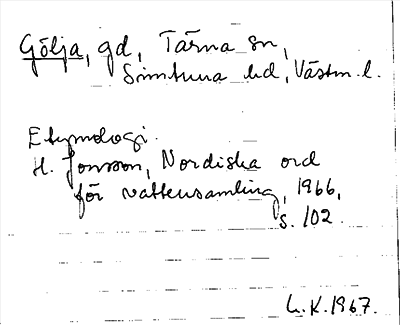 Gölja, gd, Tärna sn,
Simtuna hd, Västm. l.
Etymologi.
H. Jonsson, Nordiska ord
för vattensamling, 1966,
s. 102.
L.K. 1967.